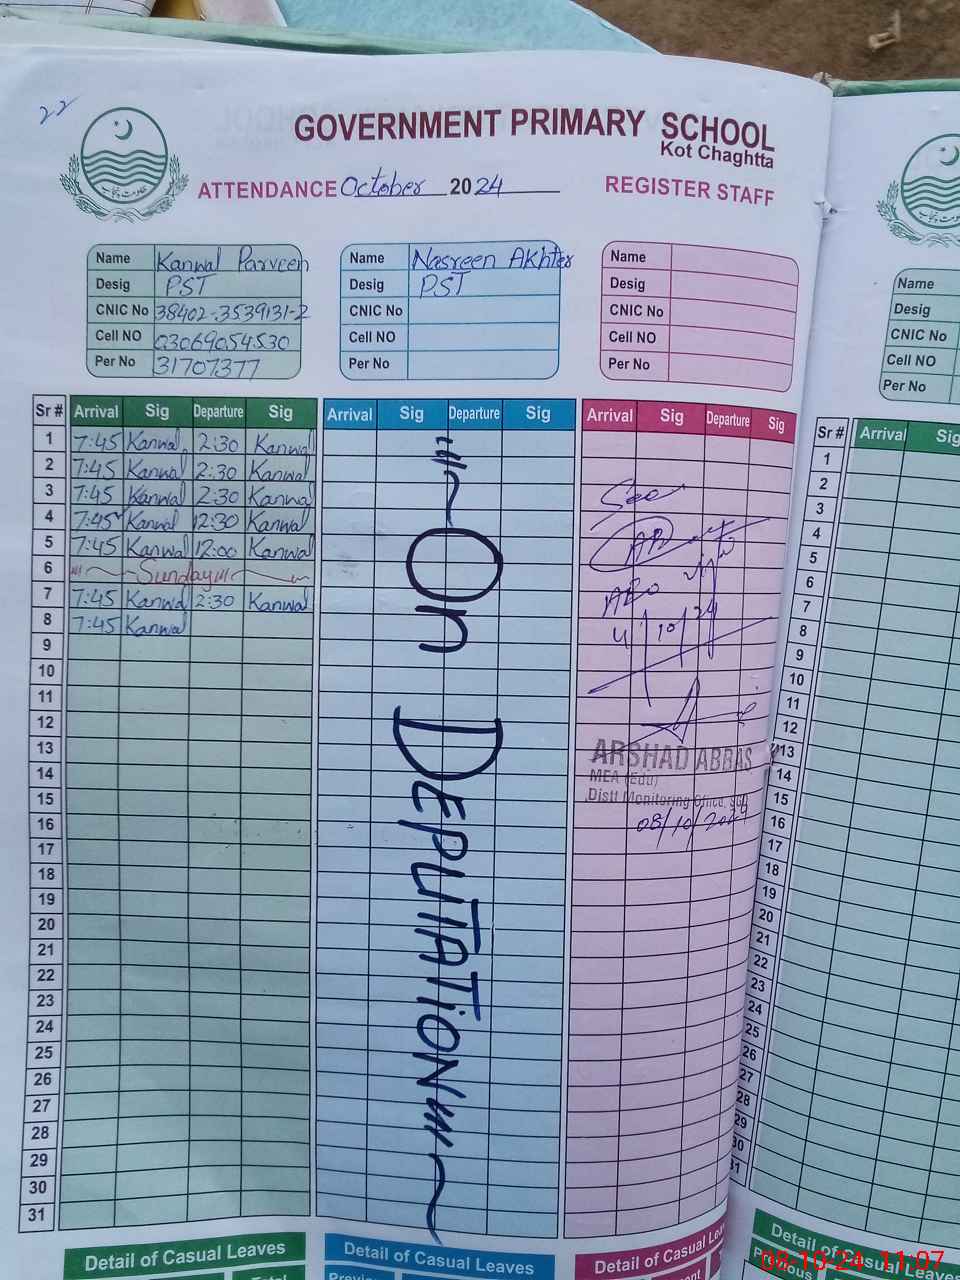 22
GOVERNMENT PRIMARY SCHOOL
Kot Chaghtta
ATTENDANCE October 2024 REGISTER STAFF
حکومت پنجاب
Name Kanwal Parveen
Desig PST
CNIC No 38402-3539131-2
Cell NO 03069054530
Per No 31707377
Name Nasreen Akhter
Desig PST
CNIC No
Cell NO
Per No
Name
Desig
CNIC No
Cell NO
Per No
Sr # Arrival Sig Departure Sig
1 7:45 Kanwal 2:30 Kanwal
2 7:45 Kanwal 2:30 Kanwal
3 7:45 Kanwal 2:30 Kanwal
4 7:45 Kanwal 12:30 Kanwal
5 7:45 Kanwal 12:00 Kanwal
6 Sunday
7 7:45 Kanwal 2:30 Kanwal
8 7:45 Kanwal
9
10
11
12
13
14
15
16
17
18
19
20
21
22
23
24
25
26
27
28
29
30
31
Arrival Sig Departure Sig
On DEPUTATION
Arrival Sig Departure Sig
AEO
4/10/24
ARSHAD ABBAS
MEA (Edu)
Distt Monitoring Office, SGD
08/10/2024
Detail of Casual Leaves
Detail of Casual Leaves
Detail of Casual Leaves
Name
Desig
CNIC No
Cell NO
Per No
Sr # Arrival Sig
1
2
3
4
5
6
7
8
9
10
11
12
13
14
15
16
17
18
19
20
21
22
23
24
25
26
27
28
29
30
31
Detail of Casual Leaves
08-10-24 11:07